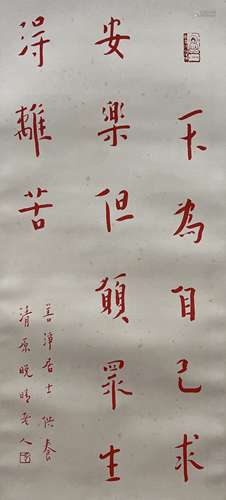 不為自己求
安樂但願眾生
得離苦
善淨居士供養
清原晚晴老人